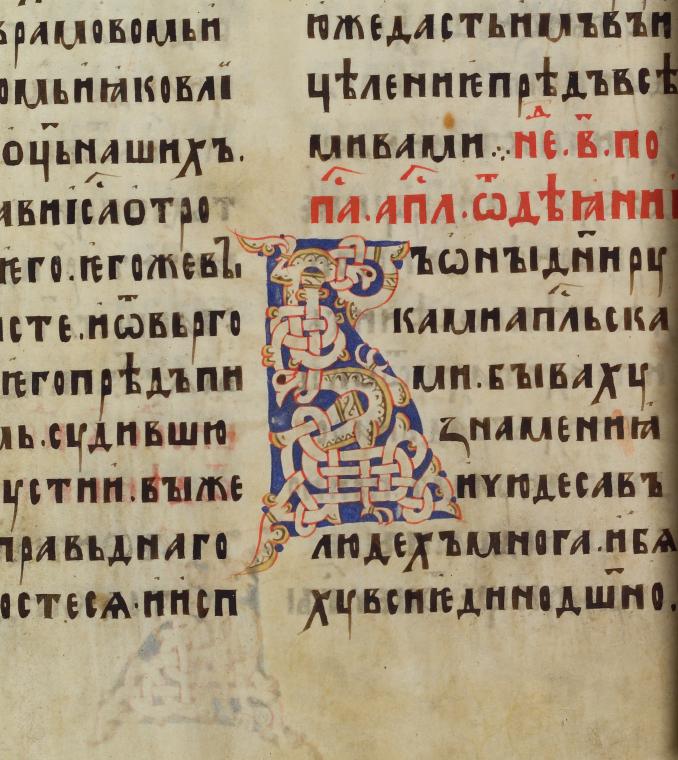 врамовомьи
омьиꙗковлї
оц҃ьнашихъ.
авнїсаотро
ѥго.ѥгожевꙑ
исте.иѿвьрго
ѥгопрѣдъпи
мь.сѹдившю
ѹстии.вꙑже
правьднаго
остесѧ.иисп
южедастьимъвъи
цѣлениѥпрѣдъвсѣ
мивами჻не҃д.в҃.по
па.апл.ѿдѣꙗнии
Въѡнꙑдн҃ирѹ
камиапл҃ьска
ми.бꙑвахѹ
знамениꙗ
иѵюдесавъ
людехъмнога.ибѧ
хѹвсиѥдинодш҃но.